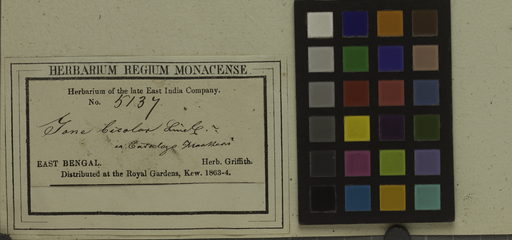 HERBARIUM REGIUM MONACENSE
Herbarium of the late East India Company.
No. 5137
bicolor
in
EAST BENGAL. Herb. Griffith.
Distributed at the Royal Gardens, Kew. 1863-4.